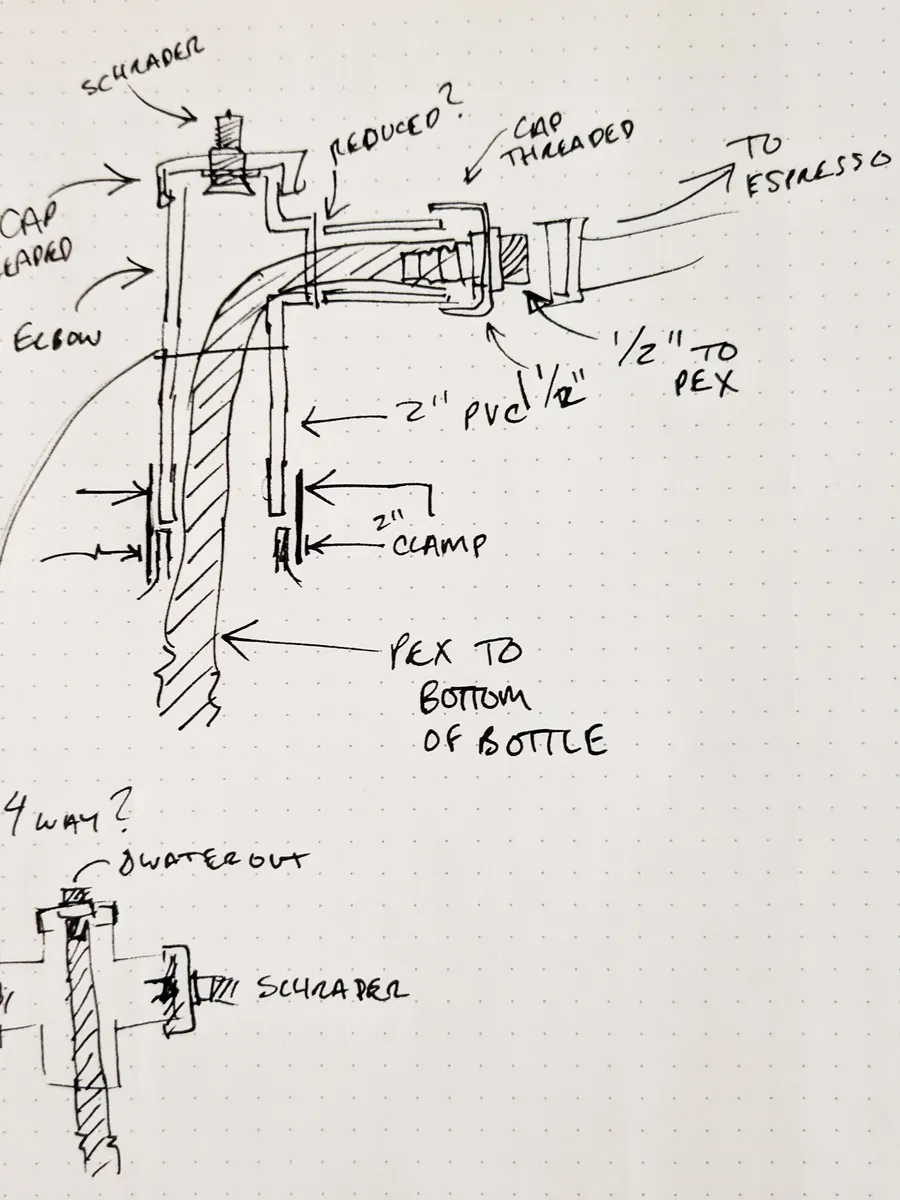 SCHRADER
REDUCED?
CAP
THREADED
TO
ESPRESSO
CAP
EADED
ELBOW
1/2" TO
PEX
2" PVC
2"
CLAMP
PEX TO
BOTTOM
OF BOTTLE
4 WAY?
WATER OUT
SCHRADER